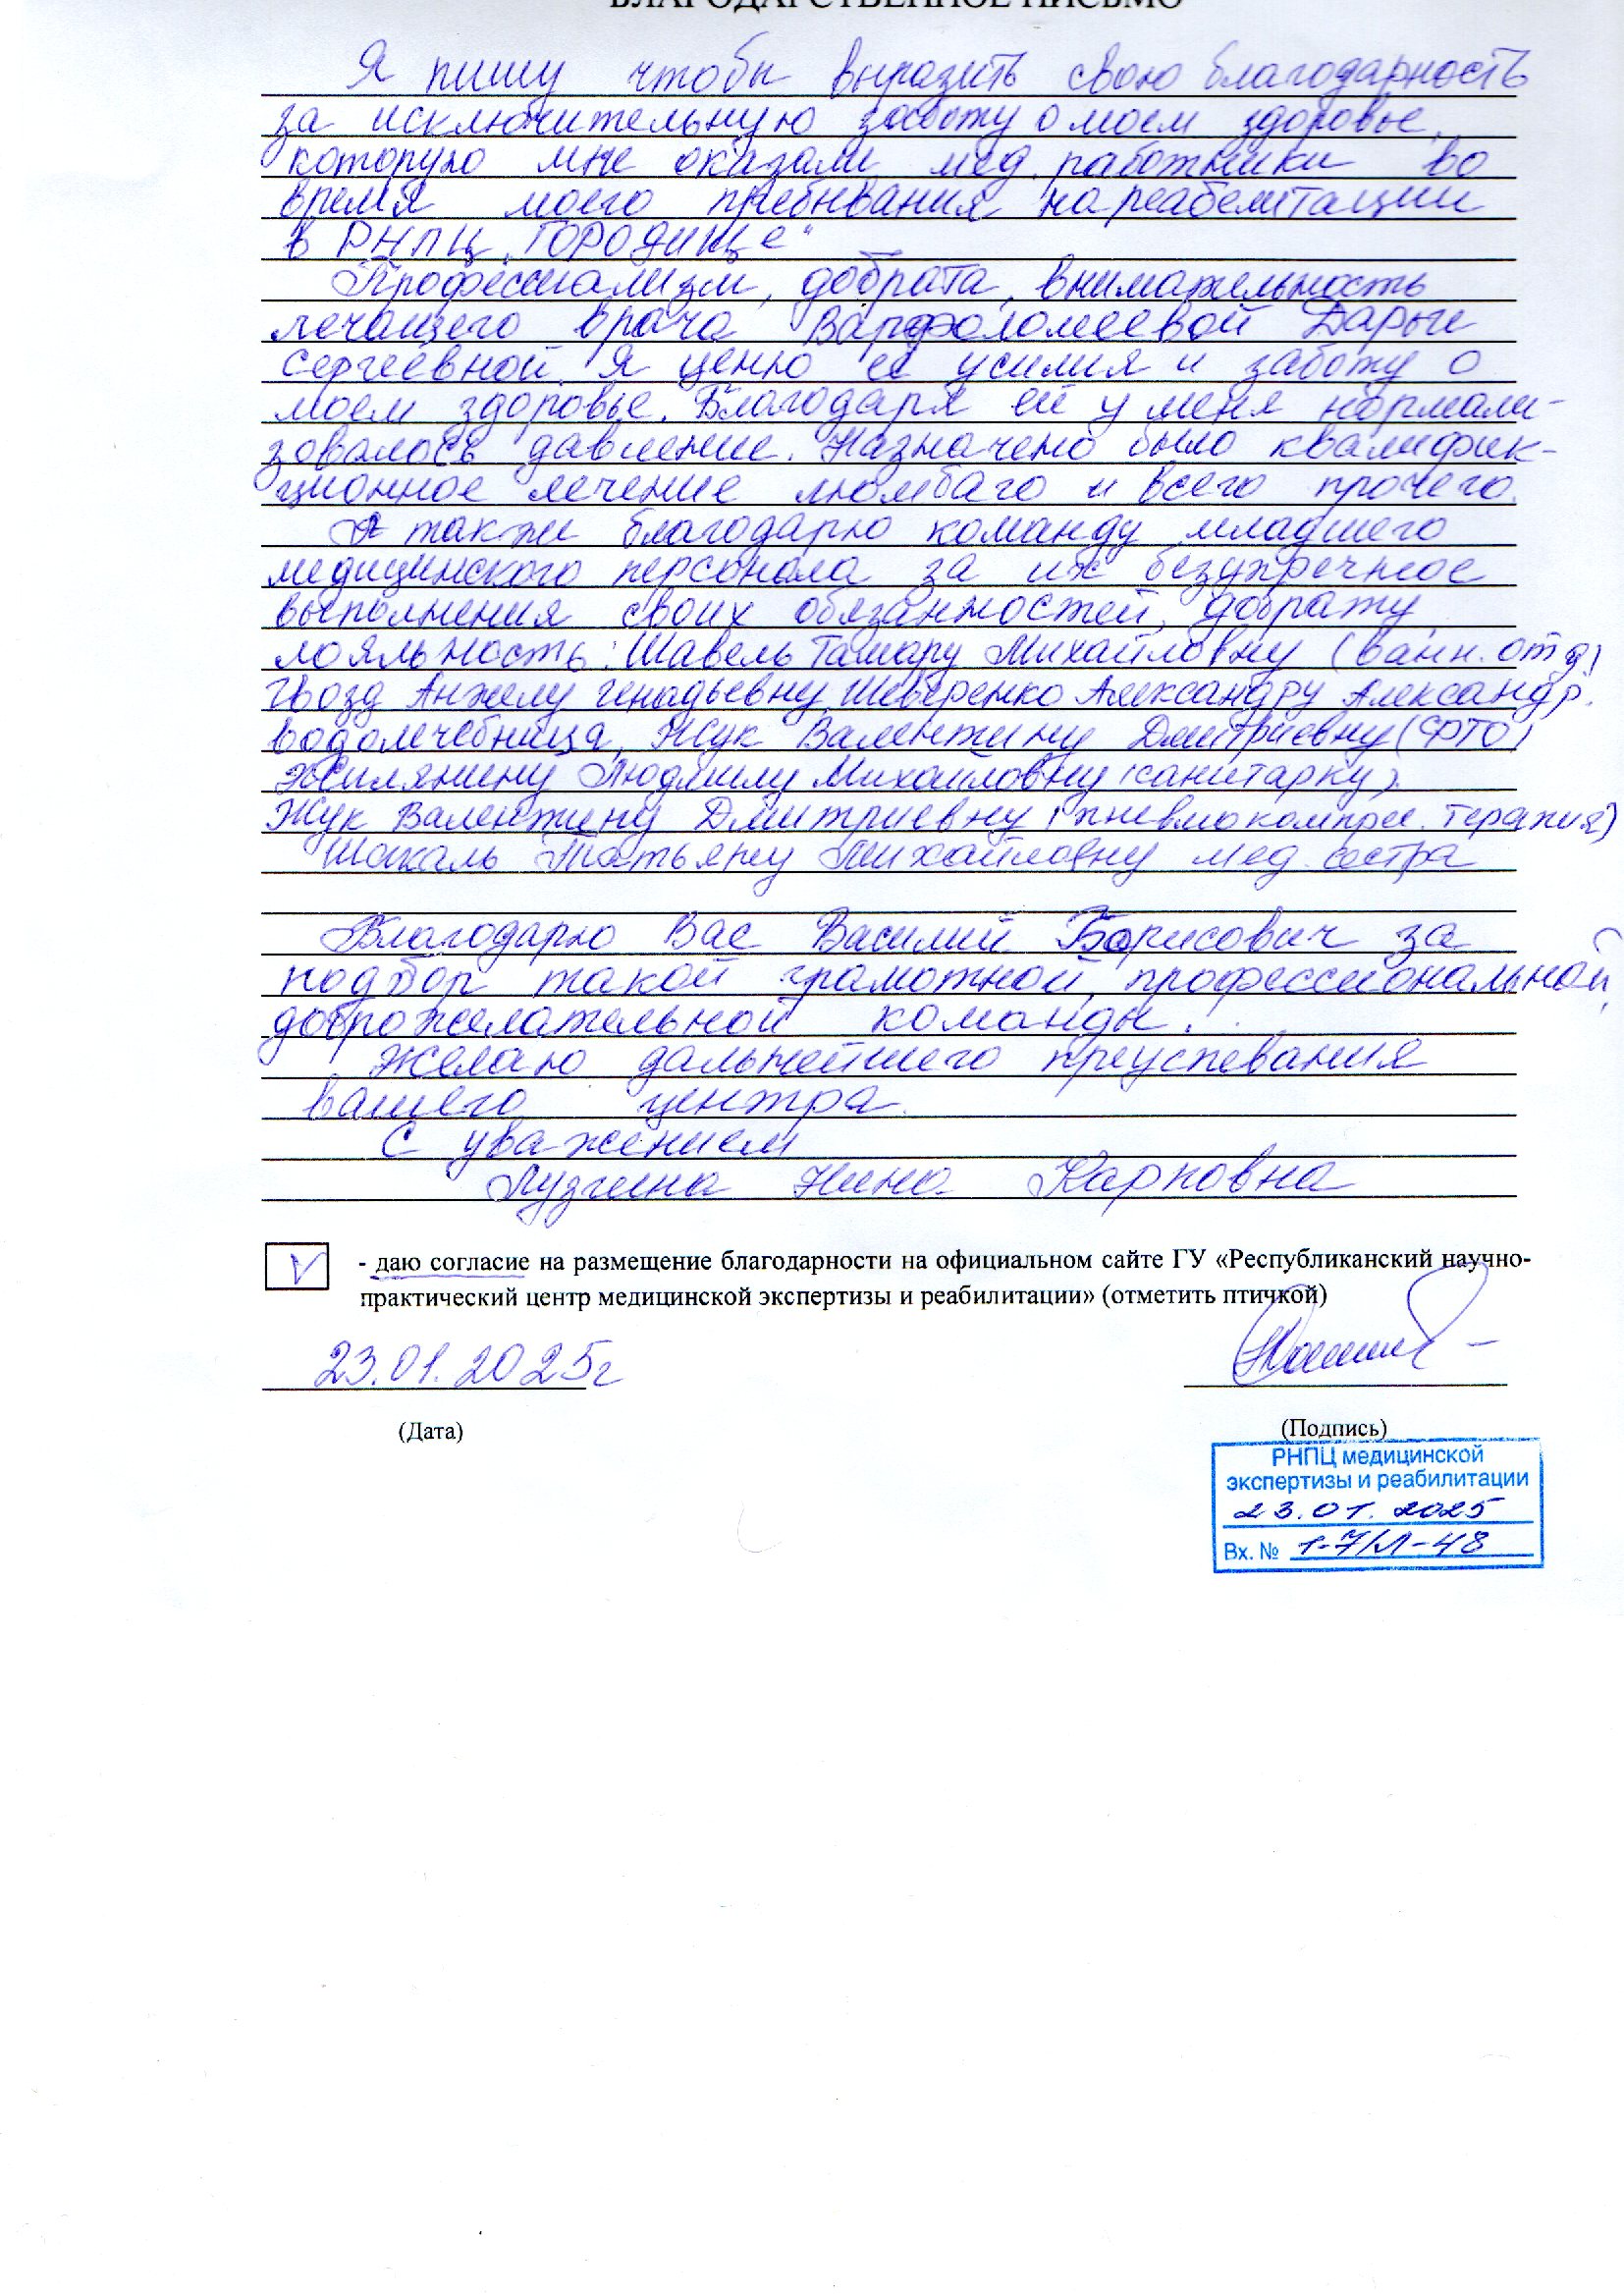 БЛАГОДАРСТВЕННОЕ ПИСЬМО
Я пишу чтобы выразить свою благодарность
за исключительную заботу о моем здоровье,
которую мне оказали мед. работники во
время моего пребывания на реабелитации
в РНПЦ „ГОРОДИЩЕ"
Професcиализм, добрата, внимательность
лечащего врача Варфоломеевой Дарьи
Сергеевной. Я ценю её усилия и заботу о
моем здоровье. Благодаря ей у меня нормали-
зовалось давление. Назначено было квалифик-
ционное лечение люмбаго и всего прочего.
А также благодарю команду младшего
медицинского персонала за их безупречное
выполнения своих обязанностей, доброту
лояльность: Шавель Тамару Михайловну (ванн. отд)
Гвозд Анжелу Генадьевну, Шеверенко Александру Александр.
водолечебница, Жук Валентину Дмитриевну (ФТО)
Людмилу Михайловну (санитарку).
Жук Валентину Дмитриевну (пневмокомпрес. терапия)
Шакаль Татьяну Михайловну мед. сестра
Благодарю Вас Василий Борисович за
подбор такой грамотной, профессиональной,
доброжелательной команды.
Желаю дальнейшего преуспевания
вашего центра.
С уважением
Лузгина Нина Карповна
V - даю согласие на размещение благодарности на официальном сайте ГУ «Республиканский научно-
практический центр медицинской экспертизы и реабилитации» (отметить птичкой)
23.01.2025г
(Дата) (Подпись)
РНПЦ медицинской
экспертизы и реабилитации
23.01.2025
Вх. № 1-7/Л-48